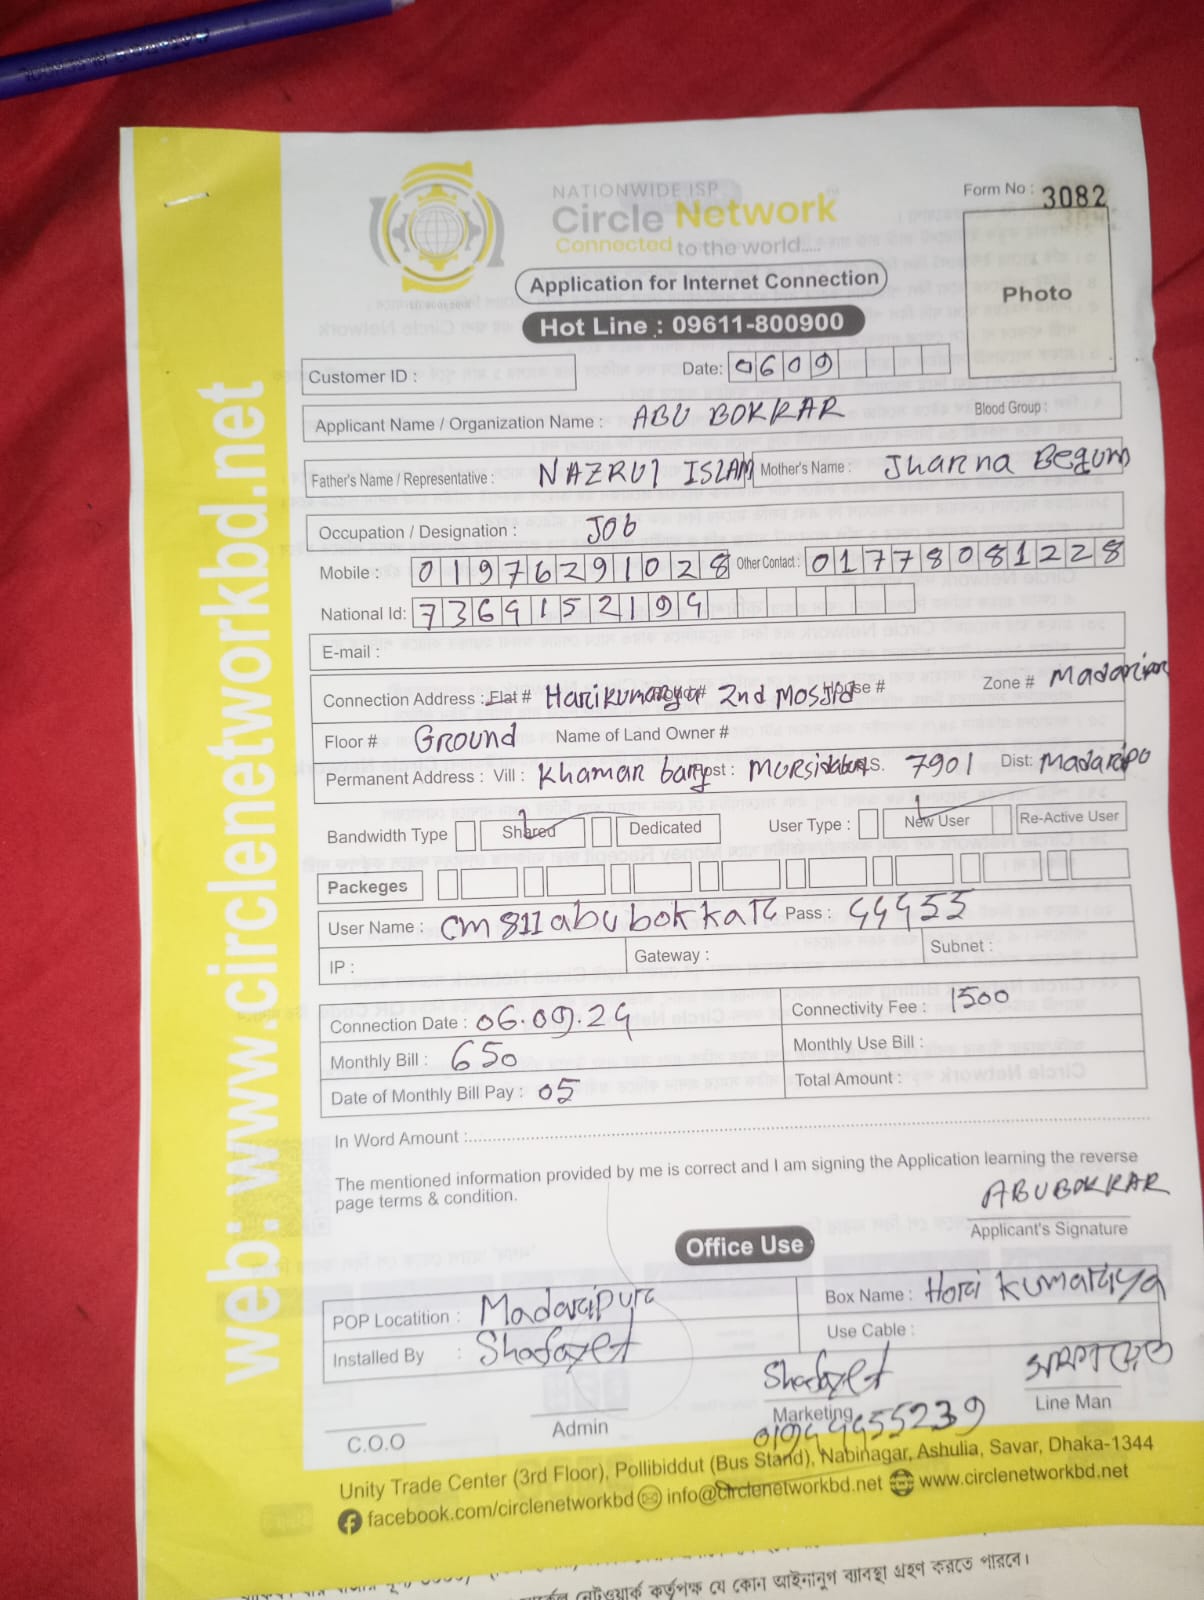 NATIONWIDE ISP
Circle Network
Connected to the world.....
Form No : 3082
Photo
Application for Internet Connection
Hot Line : 09611-800900
Customer ID :
Date: 0609
Applicant Name / Organization Name : ABU BOKRAR
Blood Group :
Father's Name / Representative : NAZRUl ISLAM Mother's Name : Jharna Begum
Occupation / Designation : JOb
Mobile : 01976291028 Other Contact : 01778081228
National Id: 7369152194
E-mail :
Connection Address : Flat # Harikumariya 2nd Mosjid House # Zone #
Floor # GROUND Name of Land Owner #
Permanent Address : Vill : Khamar bari Post : P.S. 7901 Dist: Madaripo
Bandwidth Type Shared Dedicated User Type : New User Re-Active User
Packeges
User Name : cm811abubokkar Pass : 44455
IP : Gateway : Subnet :
Connection Date : 06.09.24 Connectivity Fee : 1500
Monthly Bill : 650 Monthly Use Bill :
Date of Monthly Bill Pay : 05 Total Amount :
In Word Amount :
The mentioned information provided by me is correct and I am signing the Application learning the reverse
page terms & condition.
ABUBOKRAR
Applicant's Signature
Office Use
POP Locatition : Madaripur Box Name : Hori Kumariya
Installed By : Shafayet Use Cable :
Shafayet
C.O.O Admin Marketing Line Man
01944455239
Unity Trade Center (3rd Floor), Pollibiddut (Bus Stand), Nabinagar, Ashulia, Savar, Dhaka-1344
facebook.com/circlenetworkbd info@circlenetworkbd.net www.circlenetworkbd.net
web: www.circlenetworkbd.net
নেটওয়ার্ক কর্তৃপক্ষ যে কোন আইনানুগ ব্যাবস্থা গ্রহণ করতে পারবে।